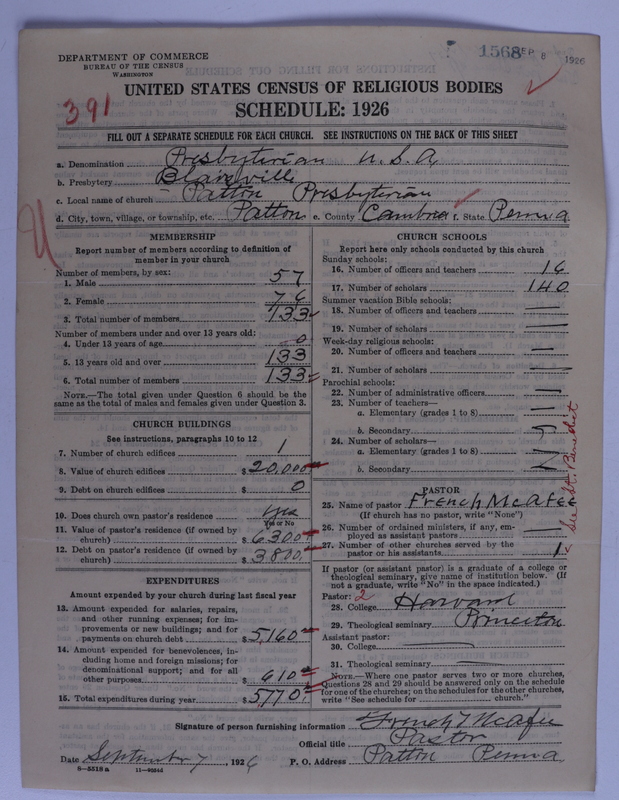 DEPARTMENT OF COMMERCE
BUREAU OF THE CENSUS
WASHINGTON
1568 SEP 8 1926
UNITED STATES CENSUS OF RELIGIOUS BODIES
SCHEDULE: 1926
391
FILL OUT A SEPARATE SCHEDULE FOR EACH CHURCH. SEE INSTRUCTIONS ON THE BACK OF THIS SHEET
a. Denomination Presbyterian U.S.A.
b. Presbytery Blairsville
c. Local name of church Patton Presbyterian
d. City, town, village, or township, etc. Patton e. County Cambria f. State Penn'a
MEMBERSHIP
Report number of members according to definition of
member in your church
Number of members, by sex:
1. Male 57
2. Female 76
3. Total number of members 133
Number of members under and over 13 years old:
4. Under 13 years of age 0
5. 13 years old and over 133
6. Total number of members 133
NOTE.—The total given under Question 6 should be
same as the total of males and females given under Question 3.
CHURCH BUILDINGS
See instructions, paragraphs 10 to 12
7. Number of church edifices 1
8. Value of church edifices $ 20,000
9. Debt on church edifices $ 0
10. Does church own pastor's residence yes
Yes or No
11. Value of pastor's residence (if owned by
church) $ 6300
12. Debt on pastor's residence (if owned by
church) $ 3800
EXPENDITURES
Amount expended by your church during last fiscal year
13. Amount expended for salaries, repairs,
and other running expenses; for im-
provements or new buildings; and for
payments on church debt $ 5,160
14. Amount expended for benevolences, in-
cluding home and foreign missions; for
denominational support; and for all
other purposes $ 610
15. Total expenditures during year $ 5770
CHURCH SCHOOLS
Report here only schools conducted by this church
Sunday schools:
16. Number of officers and teachers 16
17. Number of scholars 140
Summer vacation Bible schools:
18. Number of officers and teachers —
19. Number of scholars —
Week-day religious schools:
20. Number of officers and teachers —
21. Number of scholars —
Parochial schools:
22. Number of administrative officers —
23. Number of teachers—
a. Elementary (grades 1 to 8)
b. Secondary
24. Number of scholars—
a. Elementary (grades 1 to 8)
b. Secondary
PASTOR
25. Name of pastor French McAfee
(If church has no pastor, write "None")
26. Number of ordained ministers, if any, em-
ployed as assistant pastors —
27. Number of other churches served by the
pastor or his assistants 1
If pastor (or assistant pastor) is a graduate of a college or
theological seminary, give name of institution below. (If
not a graduate, write "No" in the space indicated.)
Pastor: 2
28. College Harvard
29. Theological seminary Princeton
Assistant pastor:
30. College —
31. Theological seminary —
NOTE.—Where one pastor serves two or more churches,
Questions 28 and 29 should be answered only on the schedule
for one of the churches; on the schedules for the other churches,
write "See schedule for church."
Signature of person furnishing information French McAfee
Official title Pastor
Date September 7, 1926 P. O. Address Patton Penn'a
8—5518a 11—9